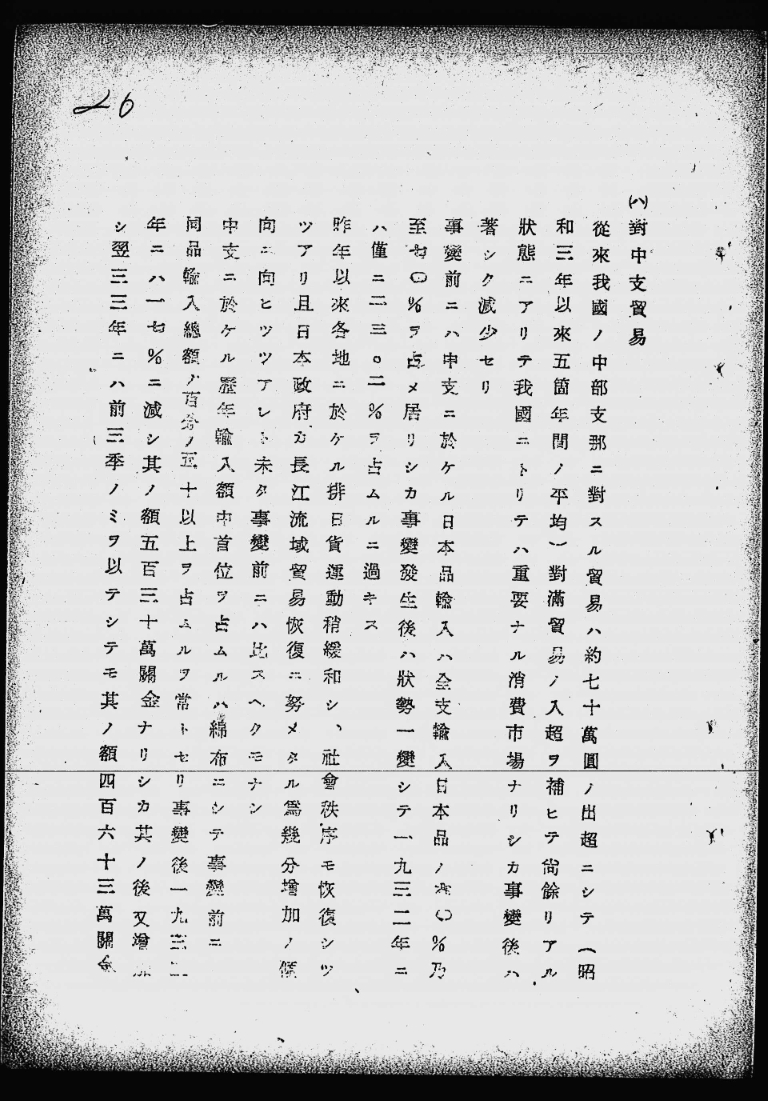 26
(ハ)對中支貿易
從來我國ノ中部支那ニ對スル貿易ハ約七十萬圓ノ出超ニシテ(昭
和三年以來五箇年間ノ平均)對滿貿易ノ入超ヲ補ヒテ尙餘リアル
狀態ニアリテ我國ニトリテハ重要ナル消費市場ナリシカ事變後ハ
著シク減少セリ
事變前ニハ中支ニ於ケル日本品輸入ハ全支輸入日本品ノ〇%乃
至七〇%ヲ占メ居リシカ事變發生後ハ狀勢一變シテ一九三二年ニ
ハ僅ニ二三。二%ヲ占ムルニ過キス
昨年以來各地ニ於ケル排日貨運動稍緩和シ、社會秩序モ恢復シツ
ツアリ且日本政府カ長江流域貿易恢復ニ努メタル爲幾分增加ノ傾
向ニ向ヒツツアレト未タ事變前ニハ比スヘクモナシ
中支ニ於ケル歷年輸入額中首位ヲ占ムルハ綿布ニシテ事變前ニ
同品輸入總額ノ百分ノ五十以上ヲ占ムルヲ常トセリ事變後一九三二
年ニハ一七%ニ減シ其ノ額五百三十萬關金ナリシカ其ノ後又增加
シ翌三三年ニハ前三季ノミヲ以テシテモ其ノ額四百六十三萬關金